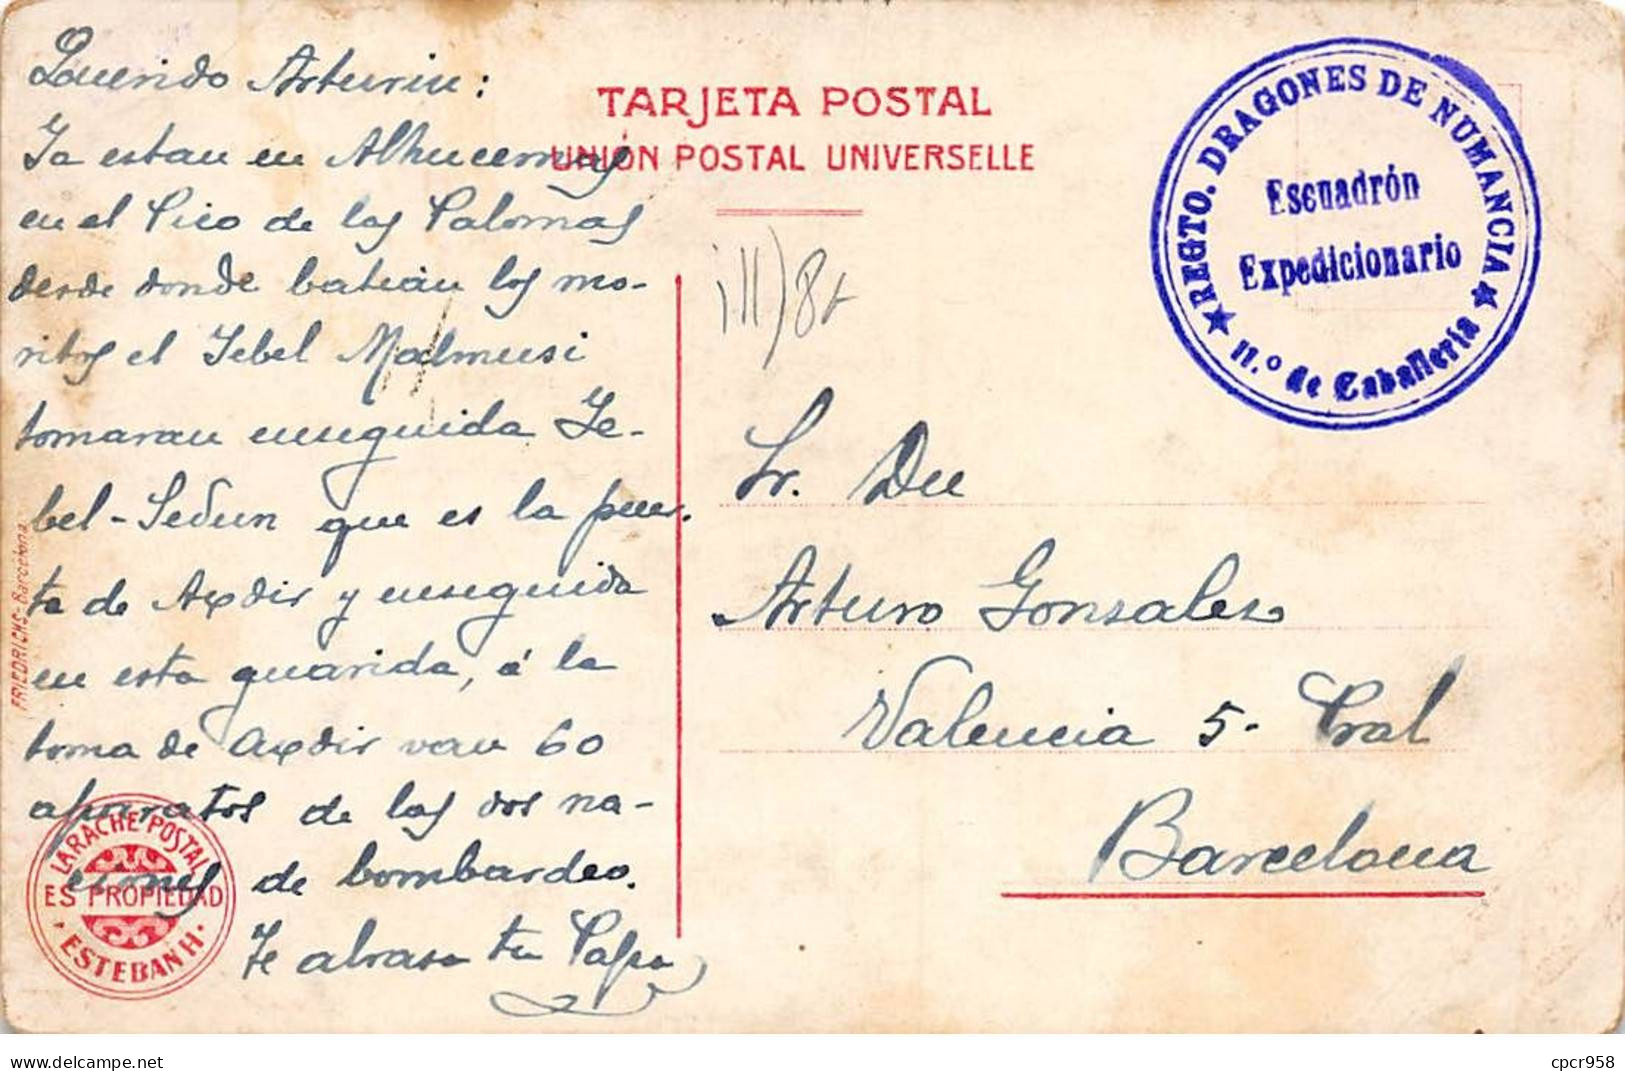 Querido Arturin:
Ya estan en Alhucemas
en el Pico de las Palomas
desde donde batían los mo-
ritos el Yebel Malmusi
tomaran enseguida Ye-
bel-Sedun que es la puer-
ta de Axdir y enseguida
en esta guarida, á la
toma de Axdir van 60
aparatos de las dos na-
ciones de bombardeo.
Te abraza tu Papa
FRIEDRICHS-Barcelona
LARACHE POSTAL
ES PROPIEDAD
ESTEBAN H.
TARJETA POSTAL
UNIÓN POSTAL UNIVERSELLE
REGTO. DRAGONES DE NUMANCIA
Escuadrón
Expedicionario
11.º de Caballería
Sr. Dn
Arturo Gonzalez
Valencia 5- Pral
Barcelona
cpcr958